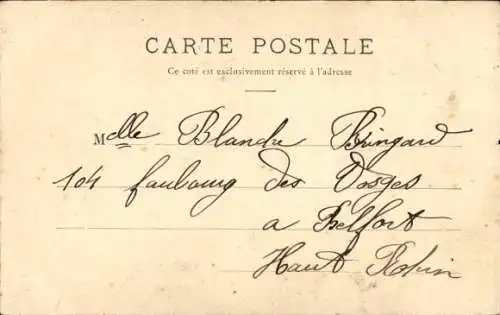 CARTE POSTALE
Ce coté est exclusivement réservé à l'adresse
Mlle Blanche Bringard
104 faubourg des Vosges
a Belfort
Haut Rhin